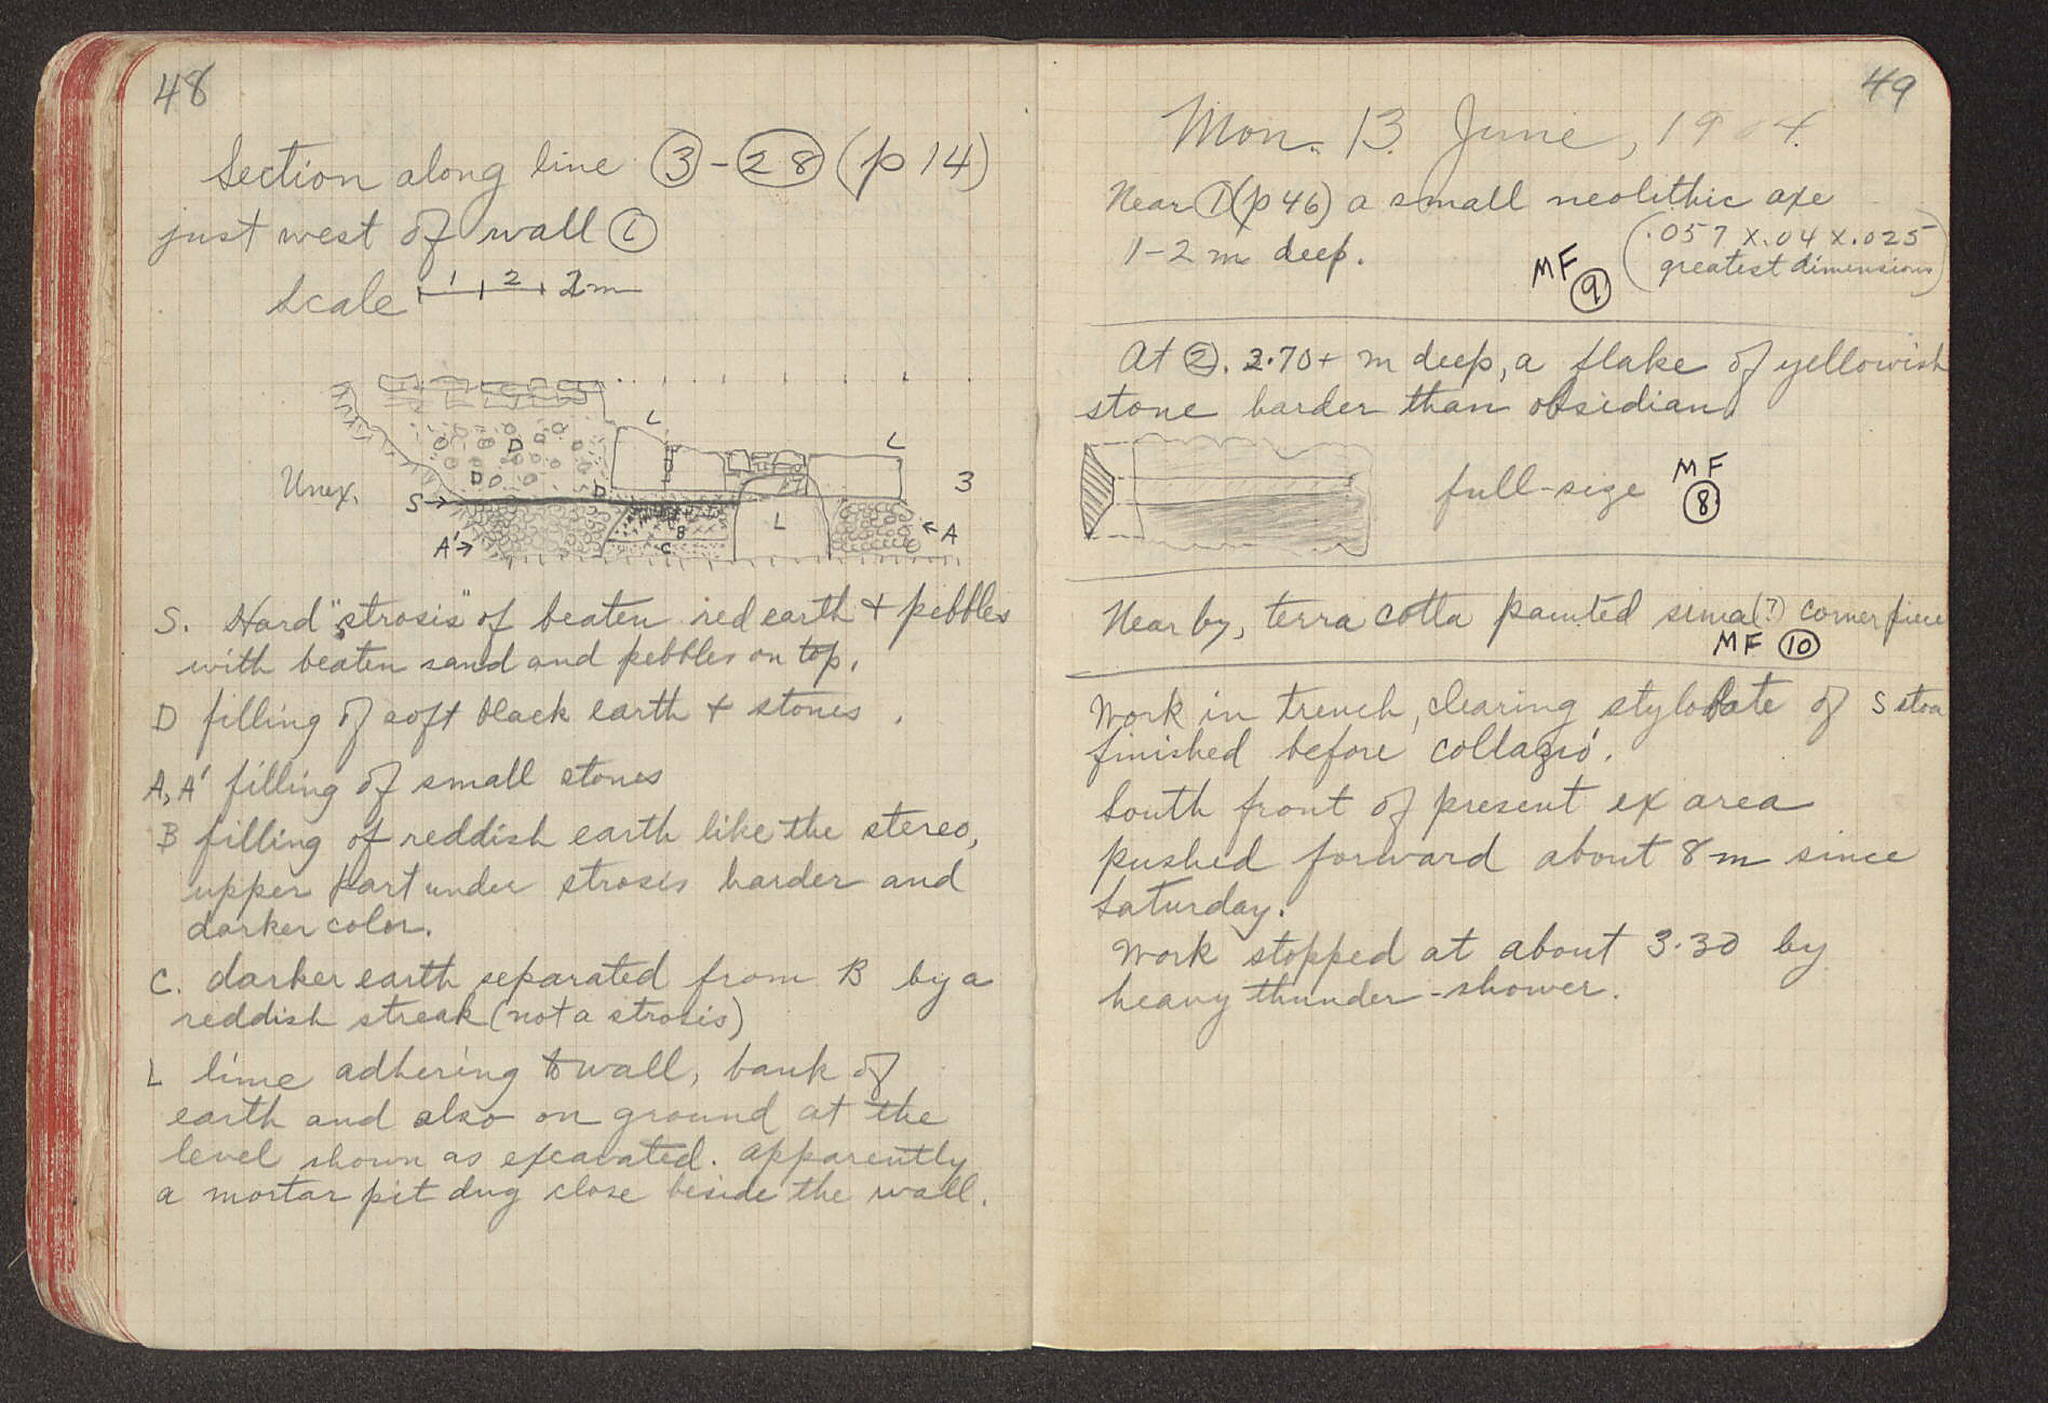 48
Section along line ③-㉘ (p 14)
just west of wall ①
Scale 1 2 2m
L
L
D
D
D
Unex.
S→
3
L
B
C
A'→
←A
S. Hard "strosis" of beaten red earth + pebbles
with beaten sand and pebbles on top.
D filling of soft black earth + stones.
A, A' filling of small stones
B filling of reddish earth like the stereo,
upper part under strosis harder and
darker color.
C. darker earth separated from B by a
reddish streak (not a strosis)
L lime adhering to wall, bank of
earth and also on ground at the
level shown as excavated. apparently
a mortar pit dug close beside the wall.
49
Mon. 13 June, 1904.
Near ① (p 46) a small neolithic axe
1-2 m deep.
(.057 x .04 x .025
greatest dimensions)
MF
⑨
At ②. 2.70+ m deep, a flake of yellowish
stone harder than obsidian.
full-size
MF
⑧
Near by, terra cotta painted sima(?) corner piece
MF ⑩
Work in trench, clearing stylobate of S stoa
finished before collazió.
South front of present ex area
pushed forward about 8 m since
Saturday.
Work stopped at about 3.30 by
heavy thunder-shower.